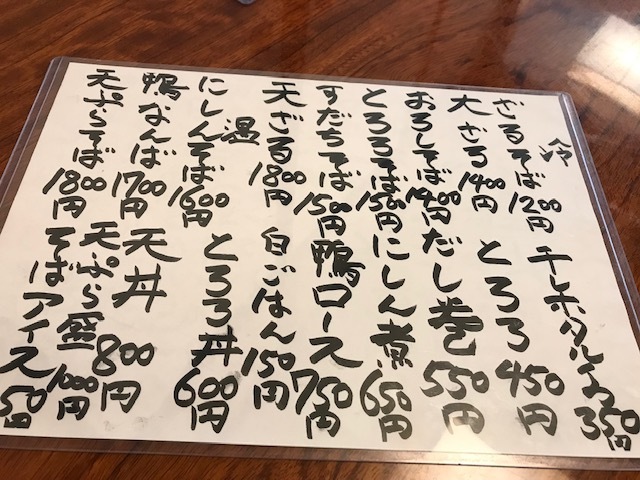 冷
ざるそば 1200円
大ざる 1400円
おろしそば 1400円
とろろそば 1500円
すだちそば 1500円
天ざる 1800円
温
にしんそば 1600円
鴨なんば 1700円
天ぷらそば 1800円
干しホタル
とろろ 450円
だし巻 550円
にしん煮 650円
鴨ロース 750円
白ごはん 150円
とろろ丼 600円
天丼 800円
天ぷら盛 1000円
そばアイス